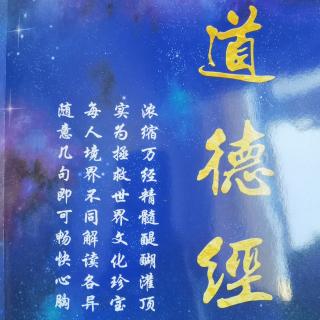 道德經
浓缩万经精髓醍醐灌顶
实为拯救世界文化珍宝
每人境界不同解读各异
随意几句即可畅快心胸